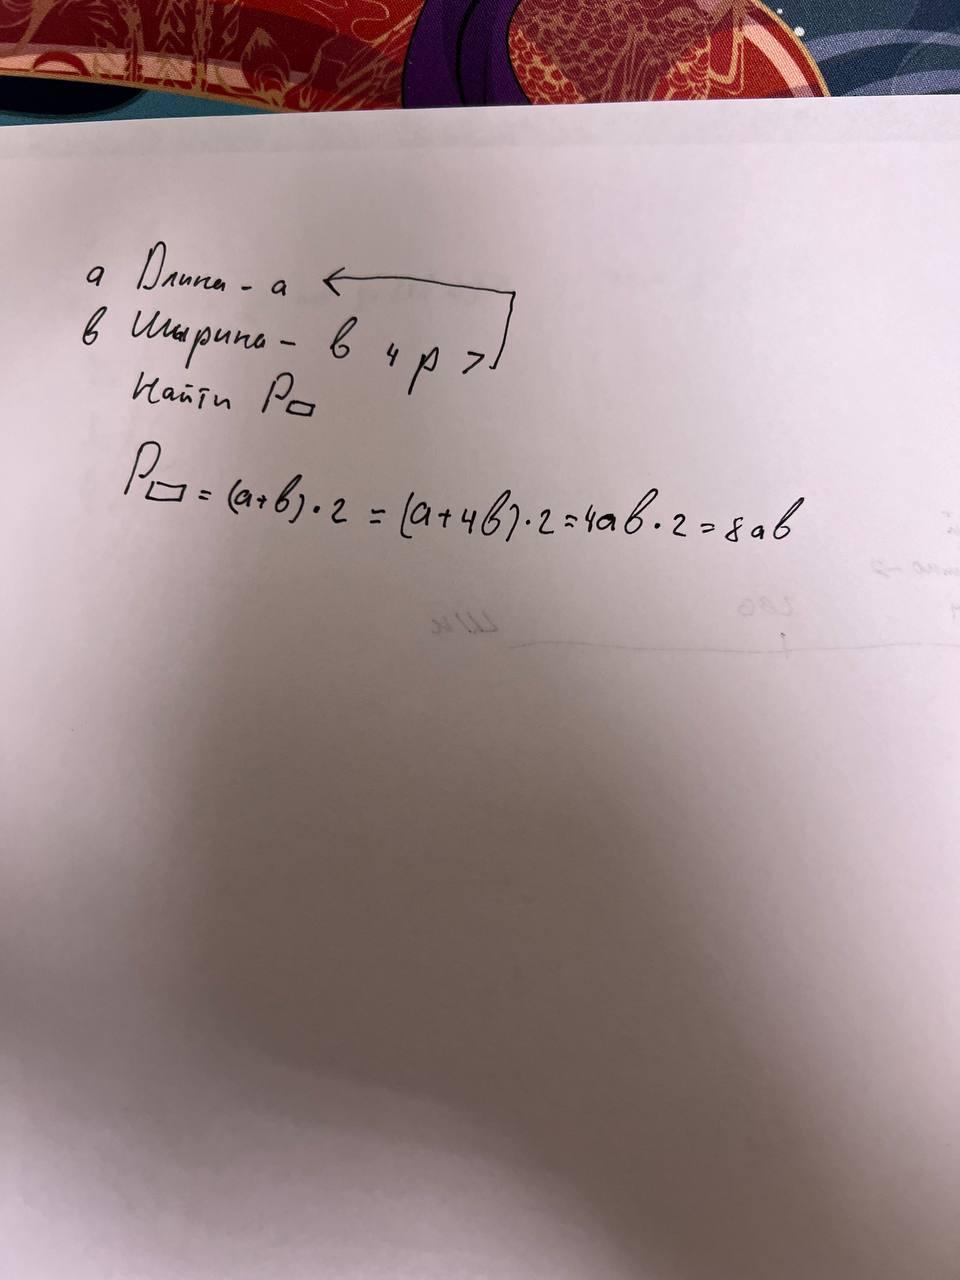 а Длина - а
в Ширина - в 4 р >
Найти P▭
P▭ = (а+в)·2 = (а+4в)·2=4ав·2=8ав